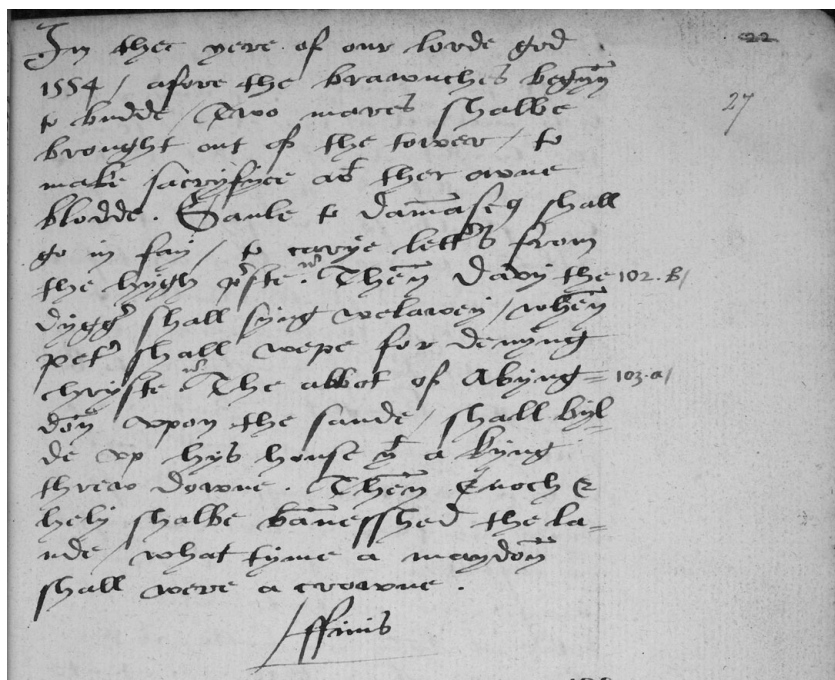 22
In thee yere of our lorde god
1554 / afore the brawnches begyn̄
27
to budde / Two mares shalbe
brought out of the tower / to
make sacryfyce at ther owne
blodde. Saule to dam̄ase9 shall
go in fay / to carye letts from
the hygh pste. Then̄ Davy the 102.b/
dyggr shall syng welawey / when̄
petr shall wepe for denyng
chryste The abbot of Abyng= 103.a/
don̄ vpon the sande / shall byl-
de vp hys house yt a kyng
threw downe. Then̄ Enoch &
hely shalbe ban̄esshed the la=
nde / what tyme a maydon̄
shall were a crowne.
ffinis